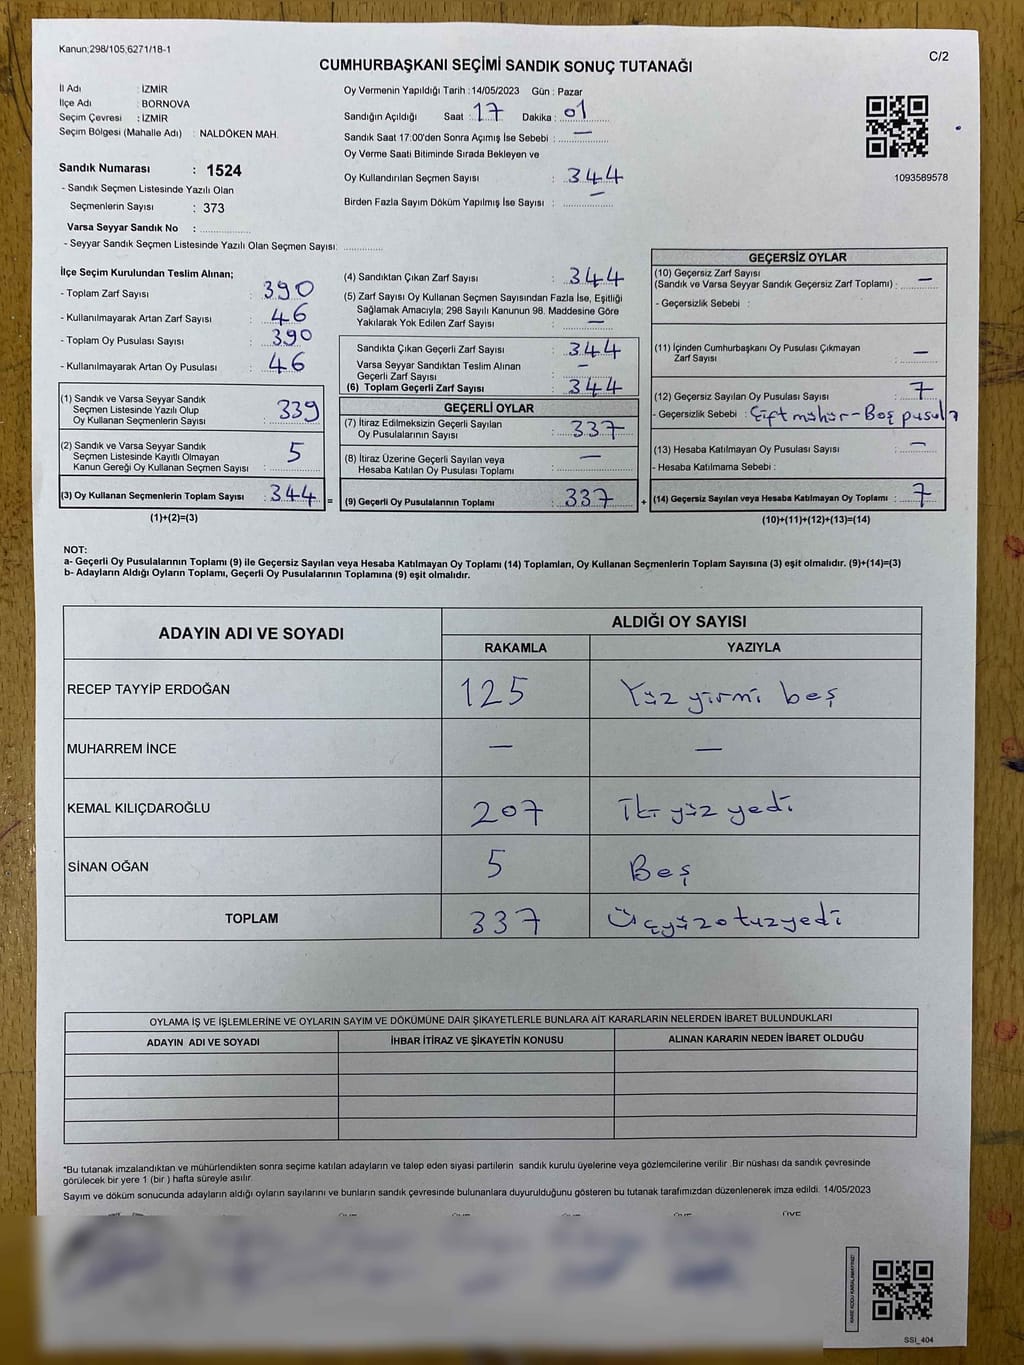 Kanun;298/105;6271/18-1
C/2
CUMHURBAŞKANI SEÇİMİ SANDIK SONUÇ TUTANAĞI
İl Adı : İZMİR
İlçe Adı : BORNOVA
Seçim Çevresi : İZMİR
Seçim Bölgesi (Mahalle Adı) : NALDÖKEN MAH.
Sandık Numarası : 1524
- Sandık Seçmen Listesinde Yazılı Olan
Seçmenlerin Sayısı : 373
Varsa Seyyar Sandık No :
- Seyyar Sandık Seçmen Listesinde Yazılı Olan Seçmen Sayısı:
Oy Vermenin Yapıldığı Tarih : 14/05/2023 Gün : Pazar
Sandığın Açıldığı Saat : 17 Dakika : 01
Sandık Saat 17:00'den Sonra Açımış İse Sebebi : —
Oy Verme Saati Bitiminde Sırada Bekleyen ve
Oy Kullandırılan Seçmen Sayısı : 344
Birden Fazla Sayım Döküm Yapılmış İse Sayısı : —
1093589578
İlçe Seçim Kurulundan Teslim Alınan;
- Toplam Zarf Sayısı : 390
- Kullanılmayarak Artan Zarf Sayısı : 46
- Toplam Oy Pusulası Sayısı : 390
- Kullanılmayarak Artan Oy Pusulası : 46
(1) Sandık ve Varsa Seyyar Sandık
Seçmen Listesinde Yazılı Olup
Oy Kullanan Seçmenlerin Sayısı : 339
(2) Sandık ve Varsa Seyyar Sandık
Seçmen Listesinde Kayıtlı Olmayan
Kanun Gereği Oy Kullanan Seçmen Sayısı : 5
(3) Oy Kullanan Seçmenlerin Toplam Sayısı : 344 =
(1)+(2)=(3)
(4) Sandıktan Çıkan Zarf Sayısı : 344
(5) Zarf Sayısı Oy Kullanan Seçmen Sayısından Fazla İse, Eşitliği
Sağlamak Amacıyla; 298 Sayılı Kanunun 98. Maddesine Göre
Yakılarak Yok Edilen Zarf Sayısı : —
Sandıkta Çıkan Geçerli Zarf Sayısı : 344
Varsa Seyyar Sandıktan Teslim Alınan
Geçerli Zarf Sayısı : —
(6) Toplam Geçerli Zarf Sayısı : 344
GEÇERLİ OYLAR
(7) İtiraz Edilmeksizin Geçerli Sayılan
Oy Pusulalarının Sayısı : 337
(8) İtiraz Üzerine Geçerli Sayılan veya
Hesaba Katılan Oy Pusulası Toplamı : —
(9) Geçerli Oy Pusulalarının Toplamı : 337 +
GEÇERSİZ OYLAR
(10) Geçersiz Zarf Sayısı
(Sandık ve Varsa Seyyar Sandık Geçersiz Zarf Toplamı) : —
- Geçersizlik Sebebi :
(11) İçinden Cumhurbaşkanı Oy Pusulası Çıkmayan
Zarf Sayısı : —
(12) Geçersiz Sayılan Oy Pusulası Sayısı : 7
- Geçersizlik Sebebi : Çift mühür - Boş pusula
(13) Hesaba Katılmayan Oy Pusulası Sayısı : —
- Hesaba Katılmama Sebebi :
(14) Geçersiz Sayılan veya Hesaba Katılmayan Oy Toplamı : 7
(10)+(11)+(12)+(13)=(14)
NOT:
a- Geçerli Oy Pusulalarının Toplamı (9) ile Geçersiz Sayılan veya Hesaba Katılmayan Oy Toplamı (14) Toplamları, Oy Kullanan Seçmenlerin Toplam Sayısına (3) eşit olmalıdır. (9)+(14)=(3)
b- Adayların Aldığı Oyların Toplamı, Geçerli Oy Pusulalarının Toplamına (9) eşit olmalıdır.
ADAYIN ADI VE SOYADI
ALDIĞI OY SAYISI
RAKAMLA YAZIYLA
RECEP TAYYİP ERDOĞAN 125 Yüz yirmi beş
MUHARREM İNCE — —
KEMAL KILIÇDAROĞLU 207 İki yüz yedi
SİNAN OĞAN 5 Beş
TOPLAM 337 Üçyüzotuzyedi
OYLAMA İŞ VE İŞLEMLERİNE VE OYLARIN SAYIM VE DÖKÜMÜNE DAİR ŞİKAYETLERLE BUNLARA AİT KARARLARIN NELERDEN İBARET BULUNDUKLARI
ADAYIN ADI VE SOYADI İHBAR İTİRAZ VE ŞİKAYETİN KONUSU ALINAN KARARIN NEDEN İBARET OLDUĞU
*Bu tutanak imzalandıktan ve mühürlendikten sonra seçime katılan adayların ve talep eden siyasi partilerin sandık kurulu üyelerine veya gözlemcilerine verilir .Bir nüshası da sandık çevresinde
görülecek bir yere 1 (bir ) hafta süreyle asılır.
Sayım ve döküm sonucunda adayların aldığı oyların sayılarını ve bunların sandık çevresinde bulunanlara duyurulduğunu gösteren bu tutanak tarafımızdan düzenlenerek imza edildi. 14/05/2023
KARE KODU KARALAMAYINIZ!
SSI_404